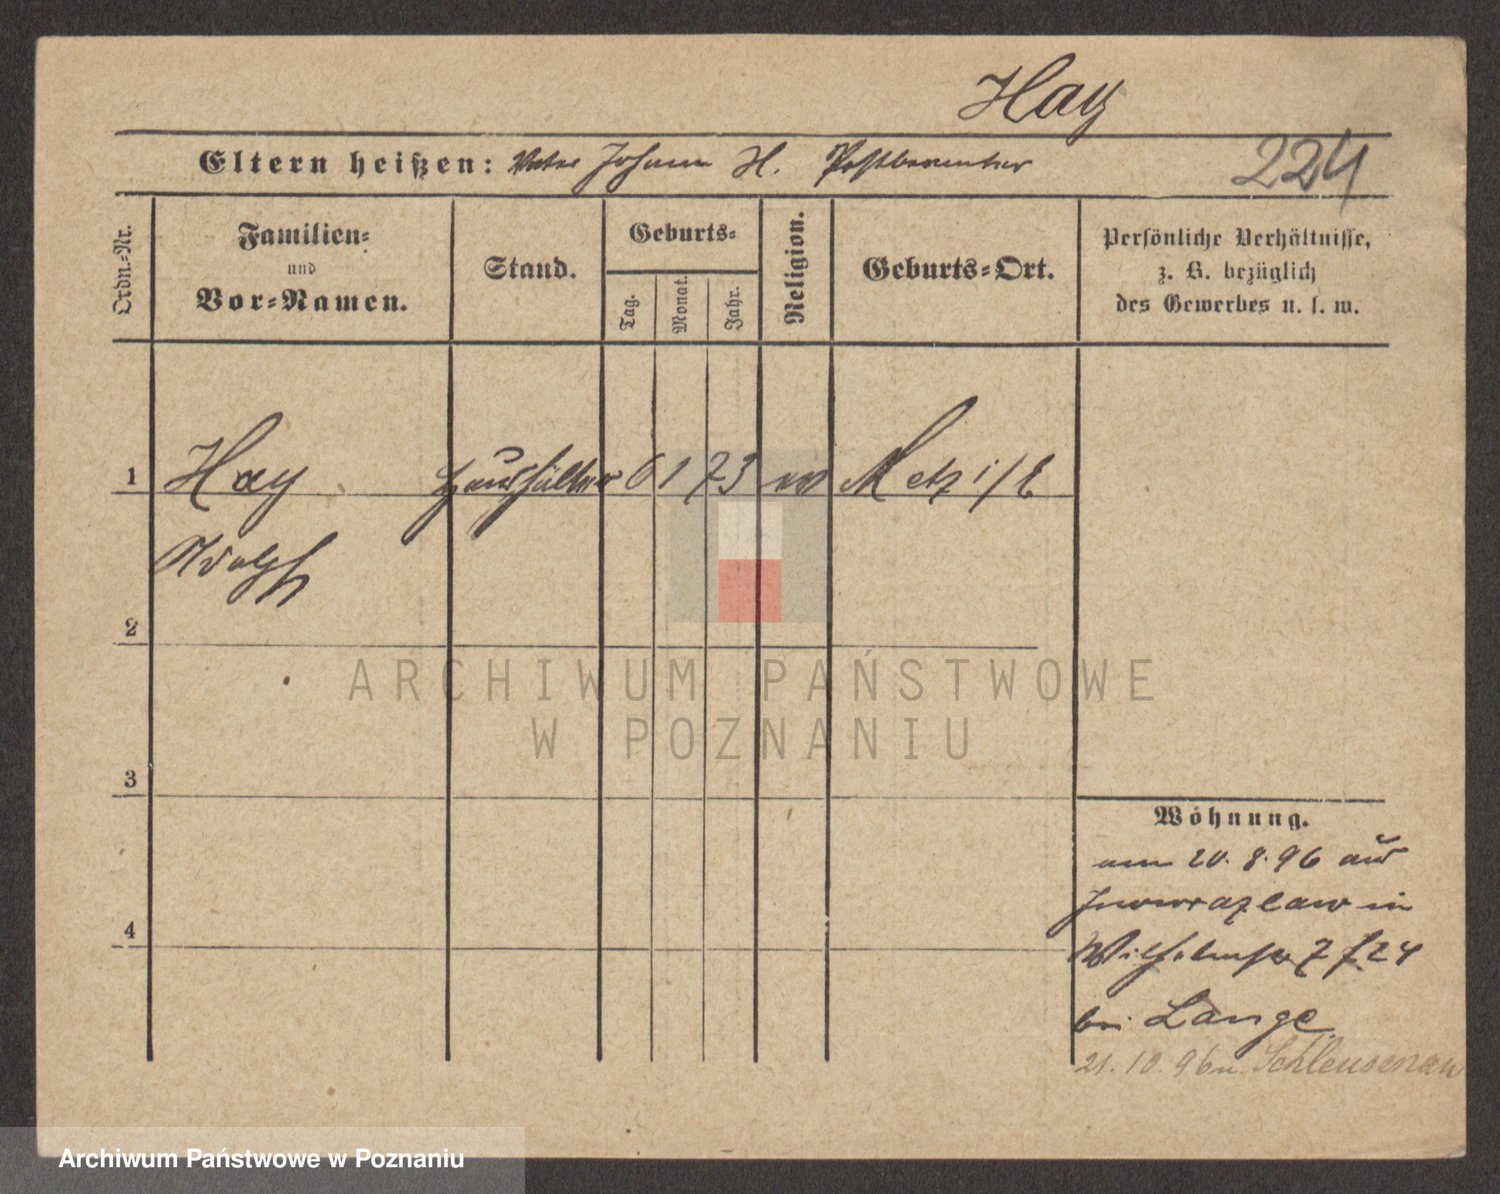 Hay
Eltern heißen: Vater Johann H. Postbeamter
224
Ordn.-Nr.
Familien-
und
Vor-Namen.
Stand.
Geburts-
Tag.
Monat.
Jahr.
Religion.
Geburts-Ort.
Persönliche Verhältnisse,
z. B. bezüglich
des Gewerbes u. s. w.
1 Hay Haushälter 6 1 73 Metz i/E
Adolph
2
3
4
Wohnung.
am 20.8.96 aus
Inowrazlaw in
Wilhelmstr 7 f. 24
bei Lange
21.10.96 n. Schleusenau
ARCHIWUM PAŃSTWOWE
W POZNANIU
Archiwum Państwowe w Poznaniu